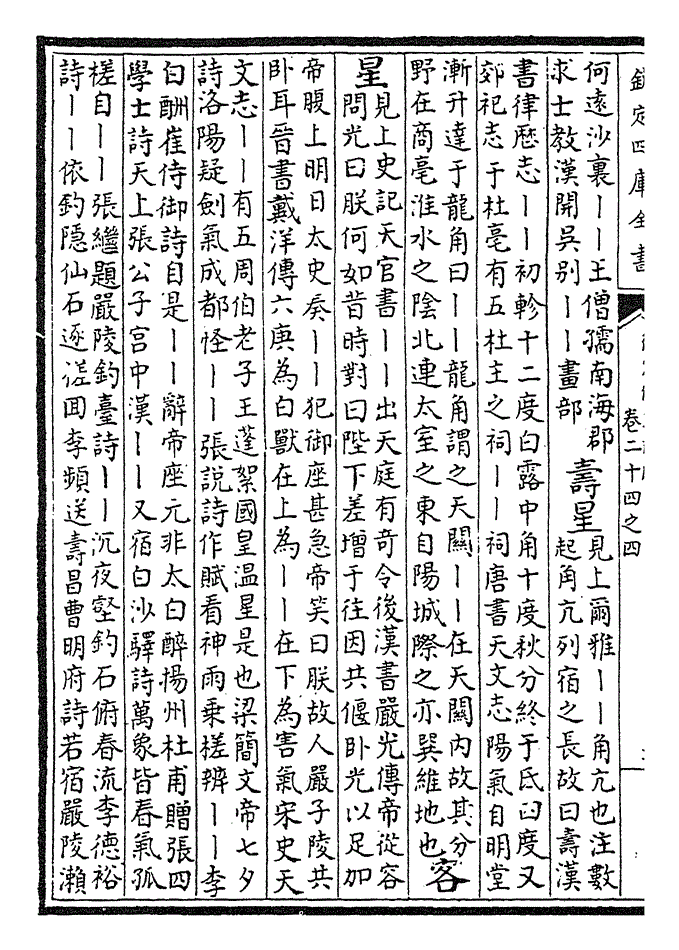 欽定四庫全書
卷二十四之四
何遠沙裏丨丨王僧孺南海郡
求士教漢開吳别丨丨畫部
壽星
見上爾雅丨丨角亢也注數
起角亢列宿之長故曰壽漢
書律歷志丨丨初軫十二度白露中角十度秋分終于氐四度又
郊祀志于杜亳有五杜主之祠丨丨祠唐書天文志陽氣自明堂
漸升達于龍角曰丨丨龍角謂之天關丨丨在天關内故其分
野在商亳淮水之陰北連太室之東自陽城際之亦巽維地也
客
星
見上史記天官書丨丨出天庭有奇令後漢書嚴光傳帝從容
問光曰朕何如昔時對曰陛下差增于往因共偃卧光以足加
帝腹上明日太史奏丨丨犯御座甚急帝笑曰朕故人嚴子陵共
卧耳晉書戴洋傳六庚為白獸在上為丨丨在下為害氣宋史天
文志丨丨有五周伯老子王蓬絮國皇温星是也梁簡文帝七夕
詩洛陽疑劍氣成都怪丨丨張說詩作賦看神雨乗槎辨丨丨李
白酬崔侍御詩自是丨丨辭帝座元非太白醉揚州杜甫贈張四
學士詩天上張公子宫中漢丨丨又宿白沙驛詩萬象皆春氣孤
槎自丨丨張繼題嚴陵釣臺詩丨丨沉夜壑釣石俯春流李德裕
詩丨丨依釣隱仙石逐槎回李頻送壽昌曹明府詩若宿嚴陵瀨